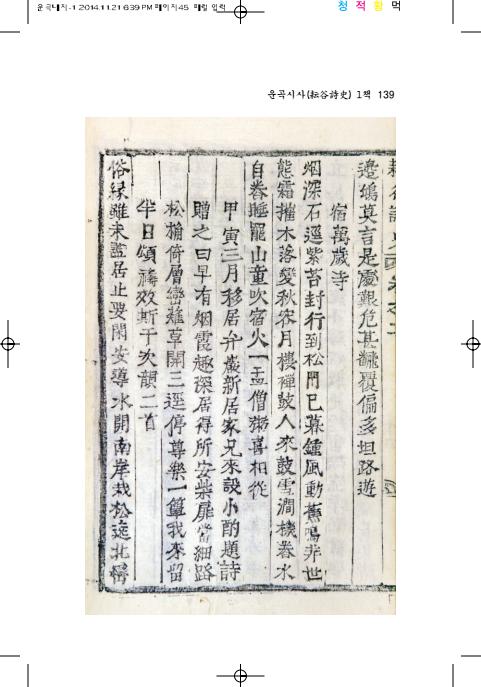 운곡시사-1 2014.11.21 6:39 PM 페이지45 매킬 입력
청 적 황 먹
운곡시사(耘谷詩史) 1책 139
邊鴻莫言是處艱危甚飜覆偏多坦路遊
宿萬歲寺
烟深石逕紫苔封行到松門已暮鍾風動蕙鳴非世
態霜摧木落變秋容月樓禪鼓人來鼓雪澗機舂水
自舂睡罷山童吹宿火一盂僧粥喜相從
甲寅三月移居弁巖新居家兄來設小酌題詩
贈之曰早有烟霞趣深居得所安柴扉當細路
松檜倚層巒薙草開三逕停尊樂一簞我來留
半日頌禱效斯干次韻二首
俗緣雖未盡居止要閑安導水開南岸栽松遶北巒